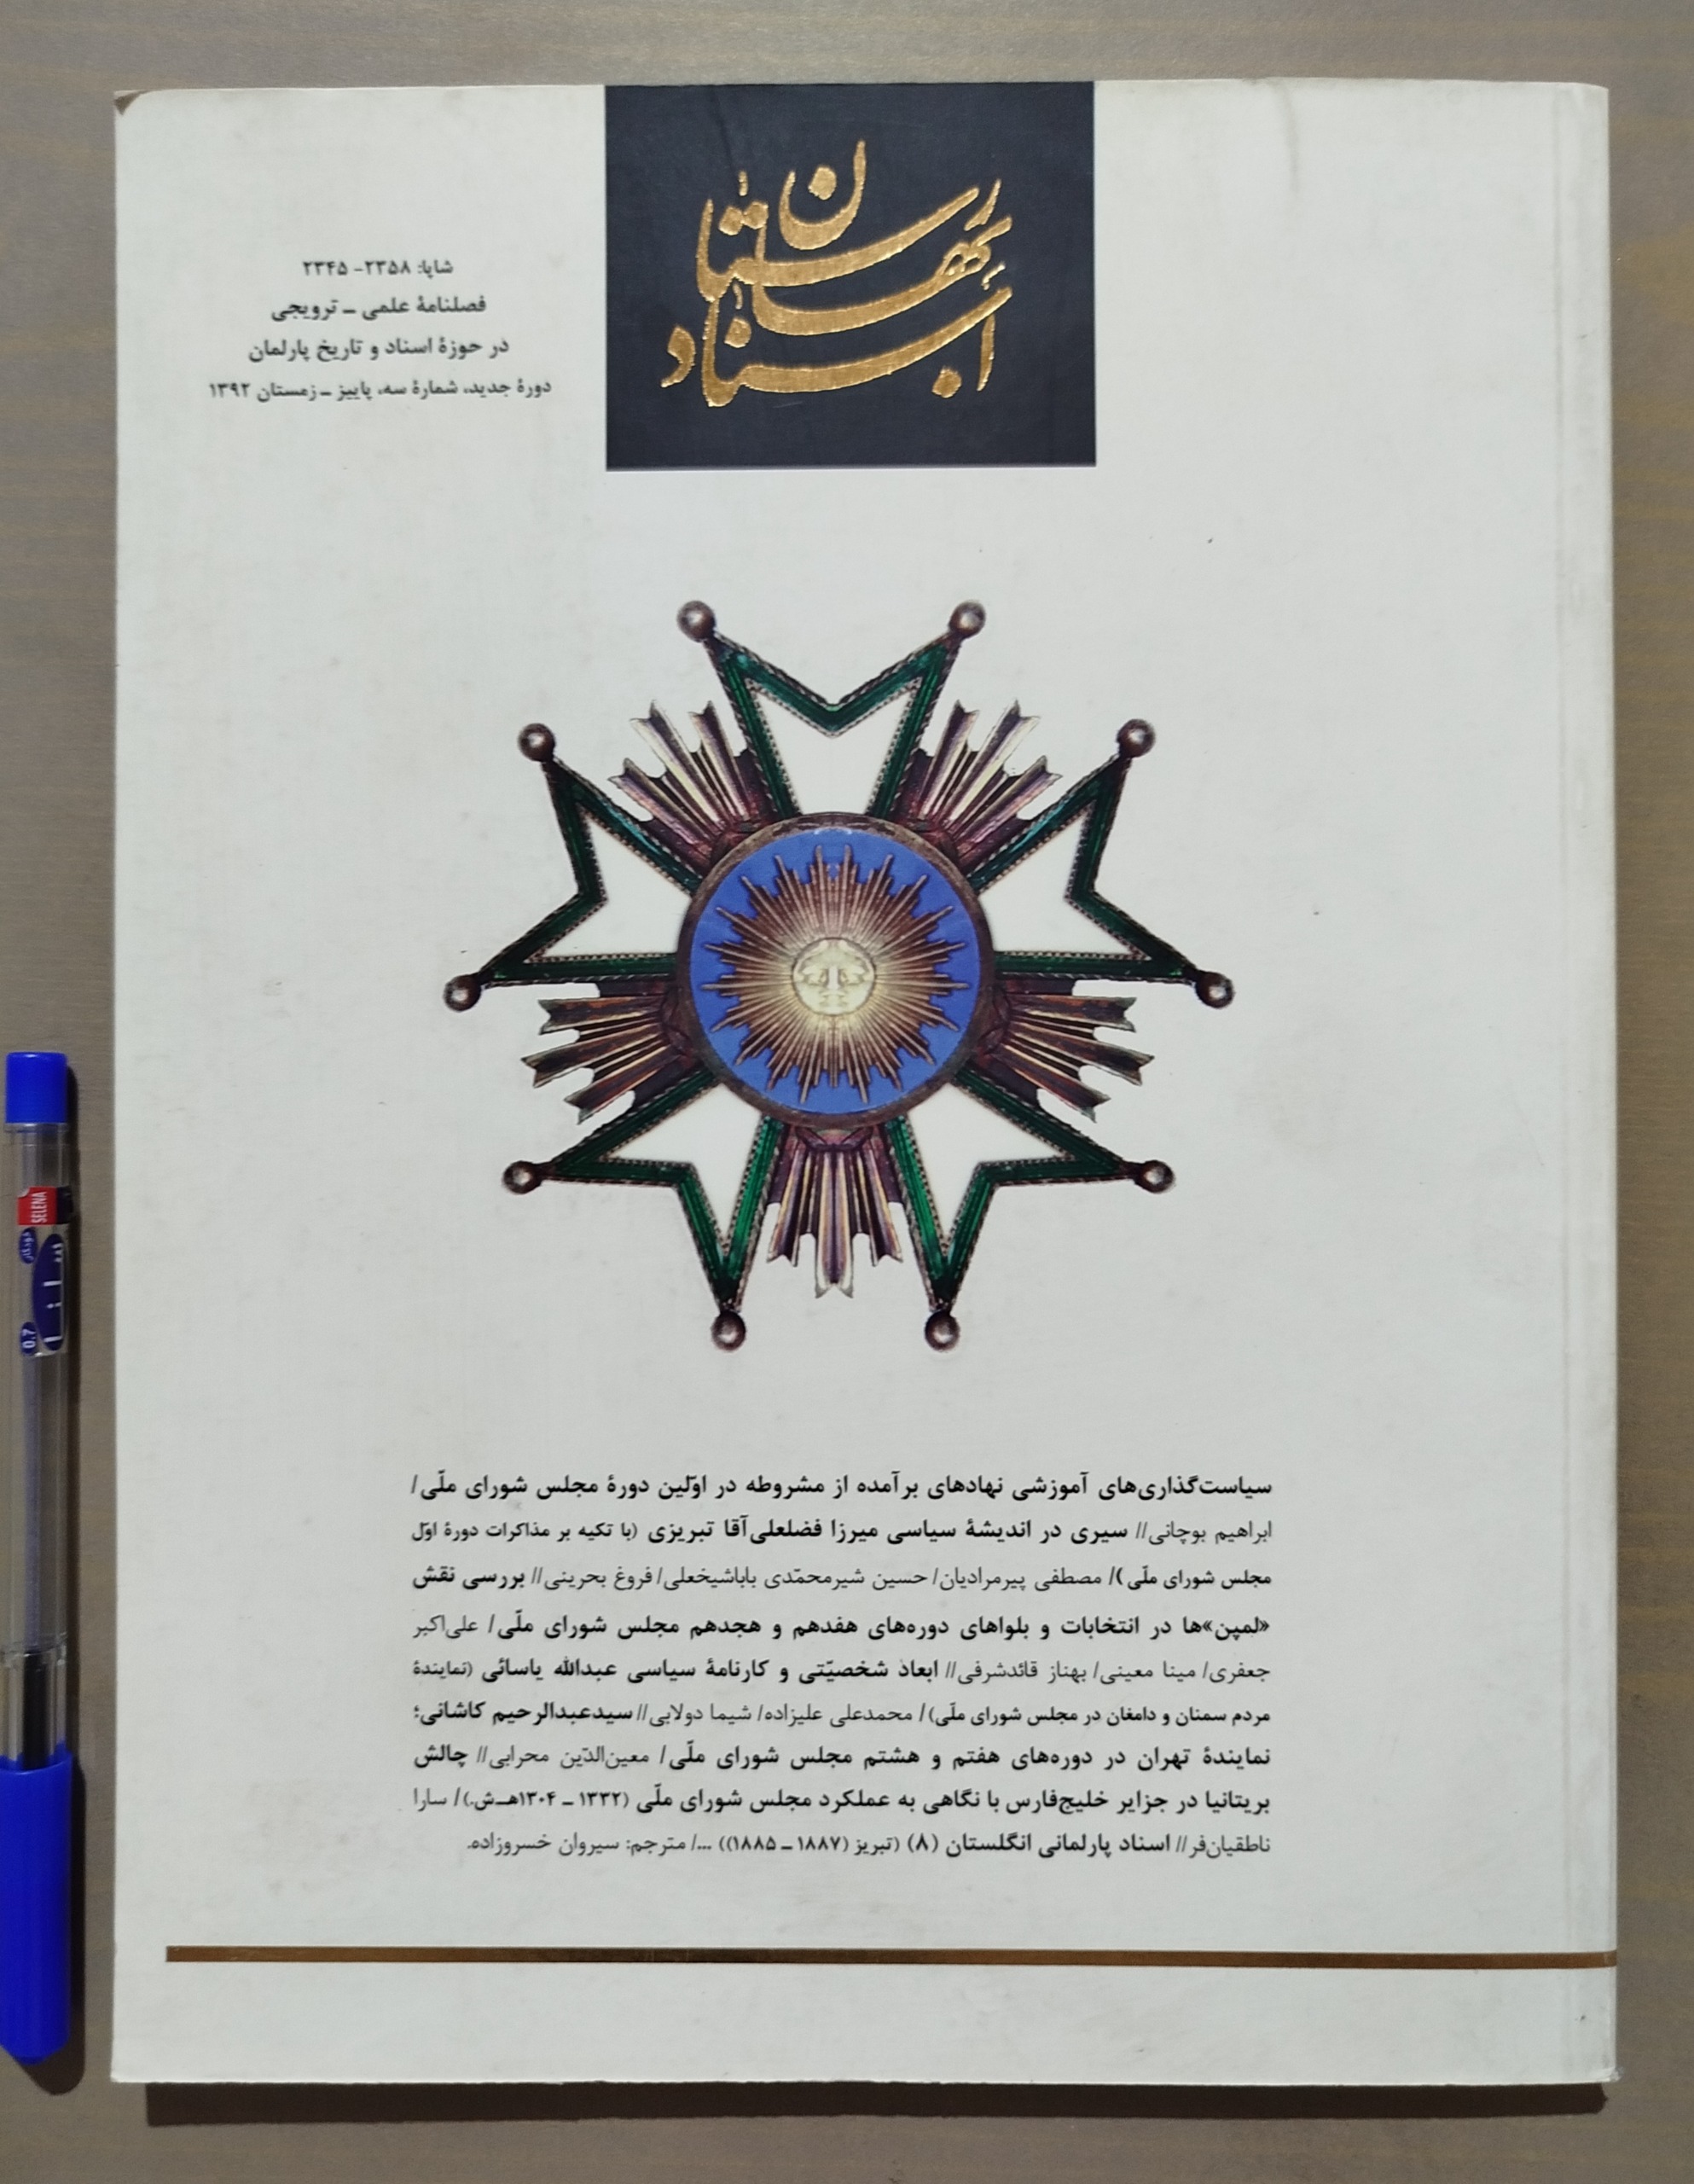 اسناد بهارستان
شاپا: ۲۳۵۸- ۲۳۴۵
فصلنامهٔ علمی ـ ترویجی
در حوزهٔ اسناد و تاریخ پارلمان
دورهٔ جدید، شمارهٔ سه، پاییز ـ زمستان ۱۳۹۲
سیاست‌گذاری‌های آموزشی نهادهای برآمده از مشروطه در اوّلین دورهٔ مجلس شورای ملّی/
ابراهیم بوچانی// سیری در اندیشهٔ سیاسی میرزا فضلعلی‌آقا تبریزی (با تکیه بر مذاکرات دورهٔ اوّل
مجلس شورای ملّی)/ مصطفی پیرمرادیان/ حسین شیرمحمّدی باباشیخعلی/ فروغ بحرینی// بررسی نقش
«لمپن»ها در انتخابات و بلواهای دوره‌های هفدهم و هجدهم مجلس شورای ملّی/ علی‌اکبر
جعفری/ مینا معینی/ بهناز قائدشرفی// ابعاد شخصیّتی و کارنامهٔ سیاسی عبدالله یاسائی (نمایندهٔ
مردم سمنان و دامغان در مجلس شورای ملّی)/ محمدعلی علیزاده/ شیما دولابی// سیدعبدالرحیم کاشانی؛
نمایندهٔ تهران در دوره‌های هفتم و هشتم مجلس شورای ملّی/ معین‌الدّین محرابی// چالش
بریتانیا در جزایر خلیج‌فارس با نگاهی به عملکرد مجلس شورای ملّی (۱۳۳۲ ـ ۱۳۰۴هـ.ش.)/ سارا
ناطقیان‌فر// اسناد پارلمانی انگلستان (۸) (تبریز (۱۸۸۷ ـ ۱۸۸۵)) .../ مترجم: سیروان خسروزاده.
SELENA
خودکار
سلنا
0.7